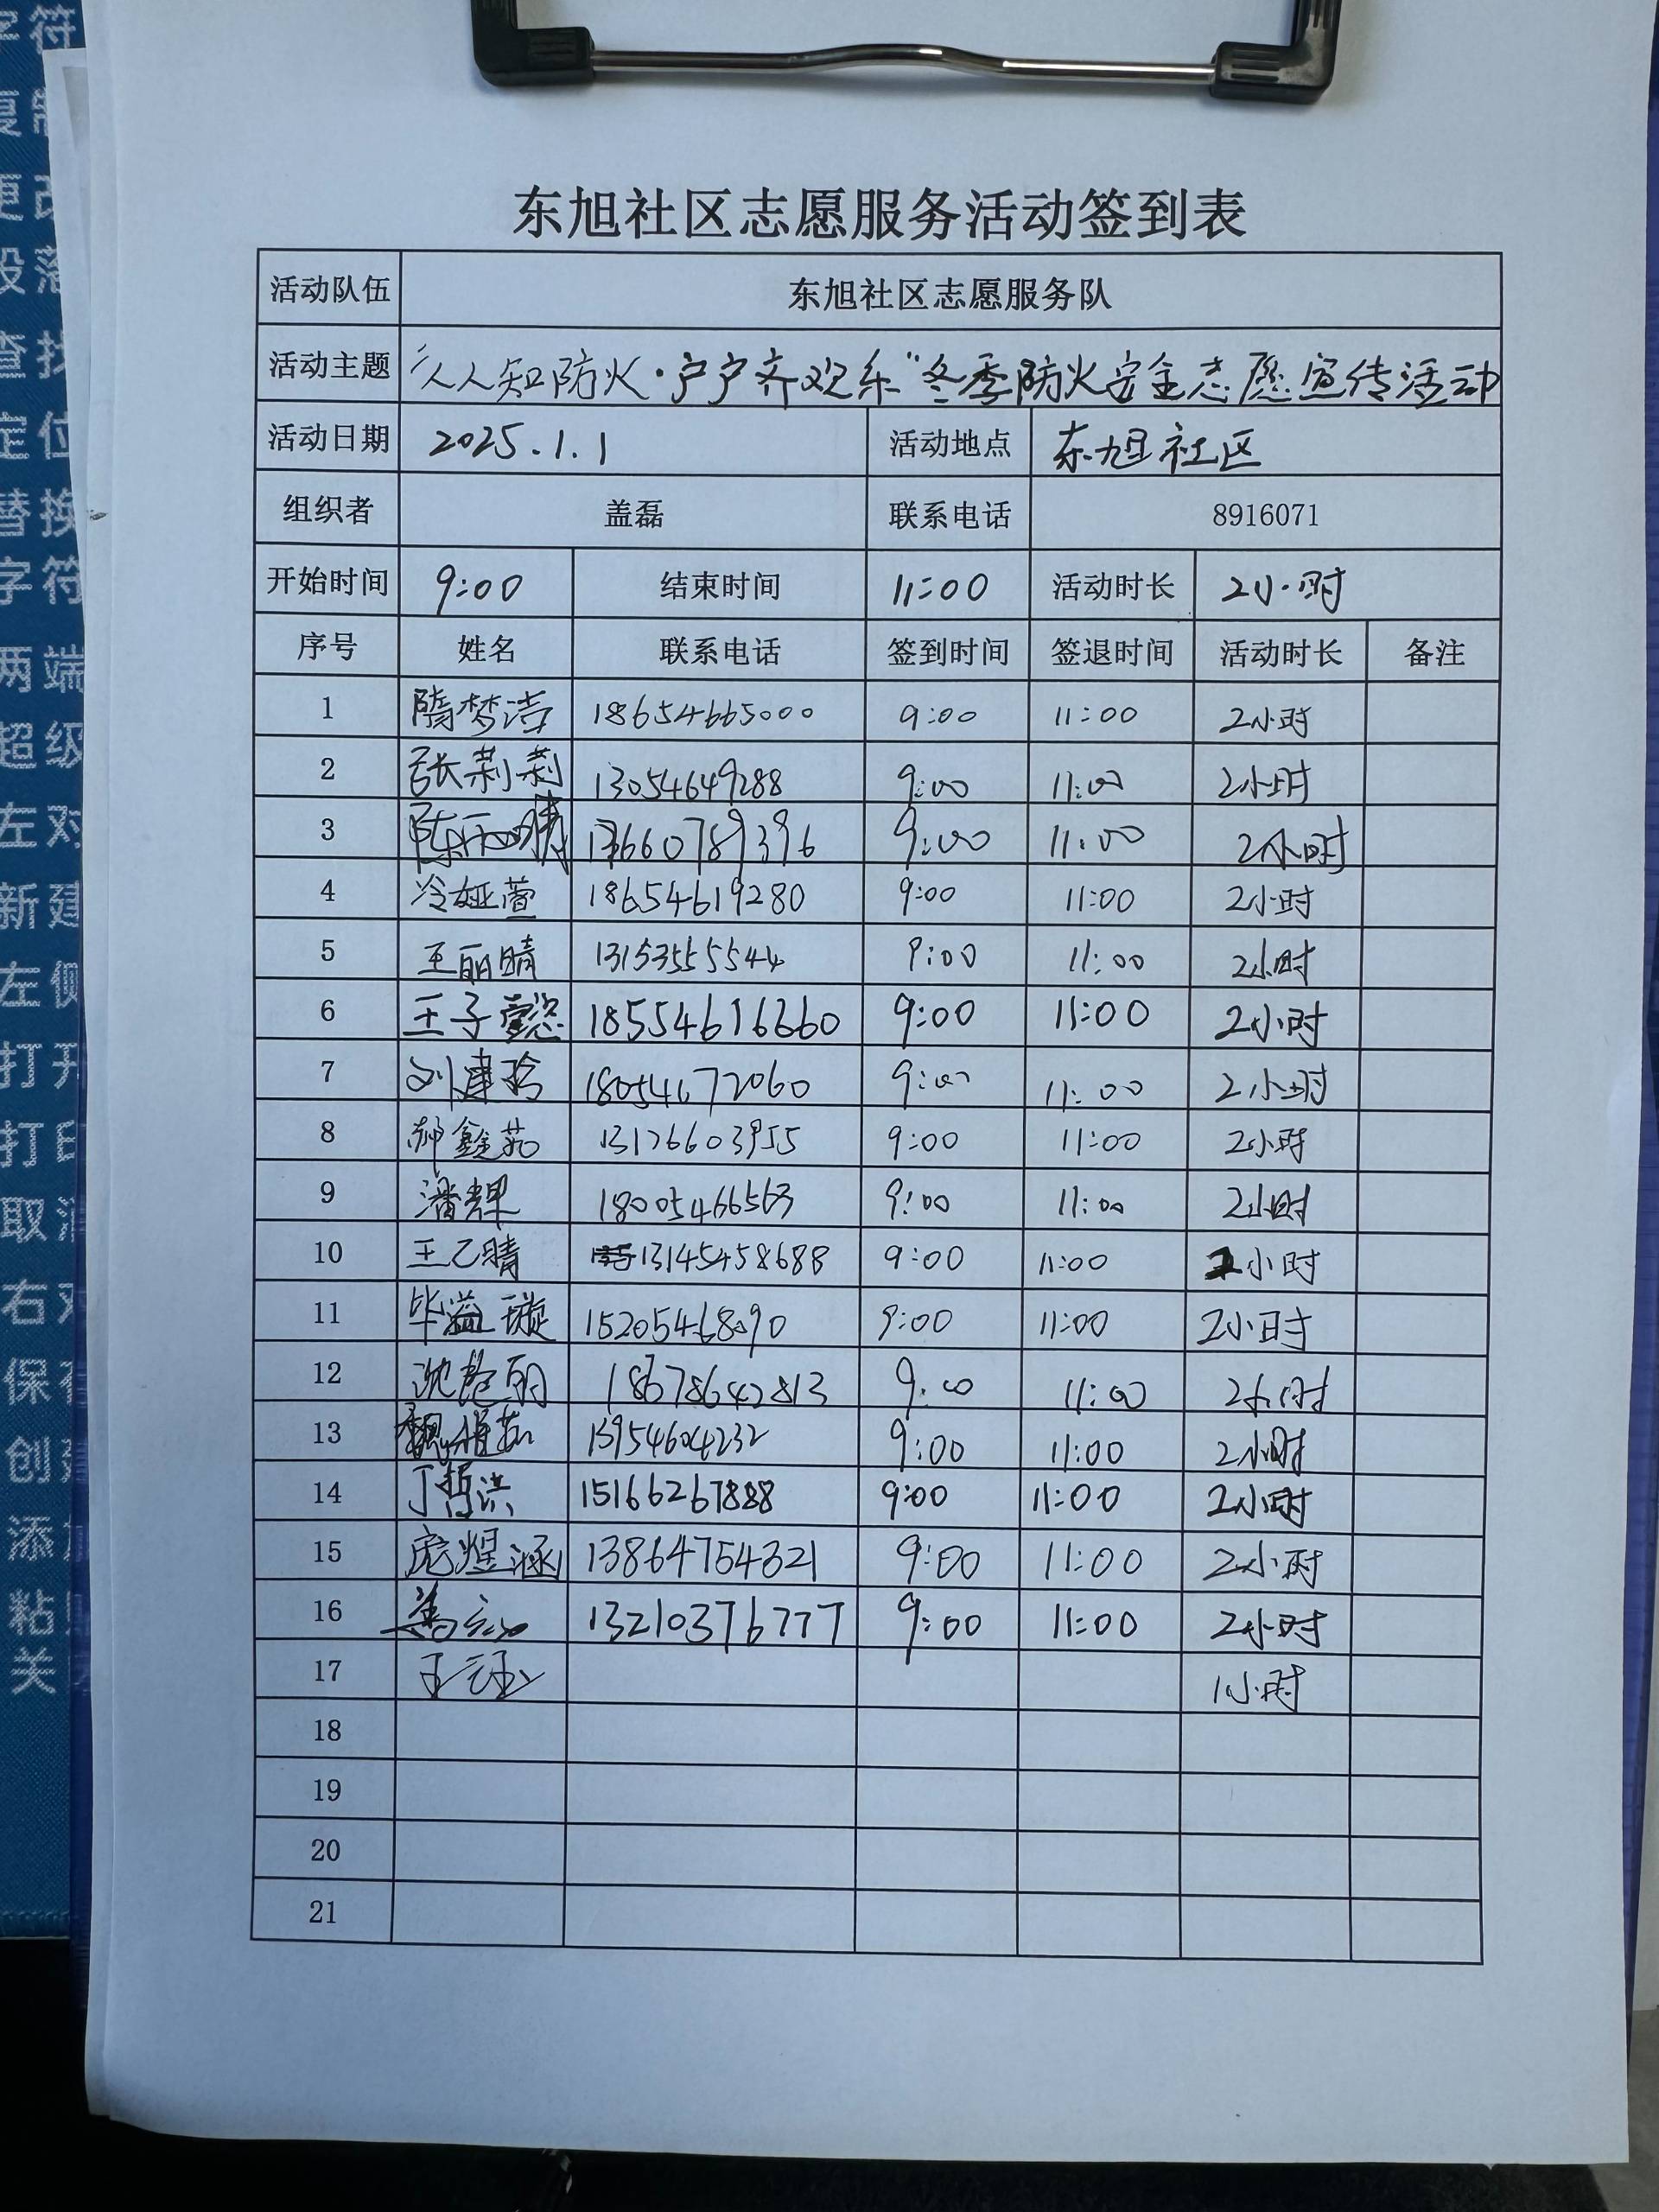 东旭社区志愿服务活动签到表
活动队伍 东旭社区志愿服务队
活动主题 "人人知防火·户户齐欢乐"冬季防火安全志愿宣传活动
活动日期 2025.1.1 活动地点 东旭社区
组织者 盖磊 联系电话 8916071
开始时间 9:00 结束时间 11:00 活动时长 2小时
序号 姓名 联系电话 签到时间 签退时间 活动时长 备注
1 隋梦洁 18654665000 9:00 11:00 2小时
2 张莉莉 13054649288 9:00 11:00 2小时
3 13660789396 9:00 11:00 2小时
4 冷娅萱 18654619280 9:00 11:00 2小时
5 王丽晴 13153555544 9:00 11:00 2小时
6 王子懿 18554616660 9:00 11:00 2小时
7 刘建玲 18054672060 9:00 11:00 2小时
8 郝鑫茹 13176603955 9:00 11:00 2小时
9 潘翠 18005466563 9:00 11:00 2小时
10 王乙晴 13145458688 9:00 11:00 2小时
11 毕溢璇 15205468090 9:00 11:00 2小时
12 18678642813 9:00 11:00 2小时
13 13954604232 9:00 11:00 2小时
14 丁哲洪 15166267888 9:00 11:00 2小时
15 庞煜涵 13864754321 9:00 11:00 2小时
16 13210376777 9:00 11:00 2小时
17 王云玉 1小时
18
19
20
21
字符
更改
段落
查找
定位
替换
字符
两端
超级
左对
新建
打开
打印
取消
保存
粘贴
关